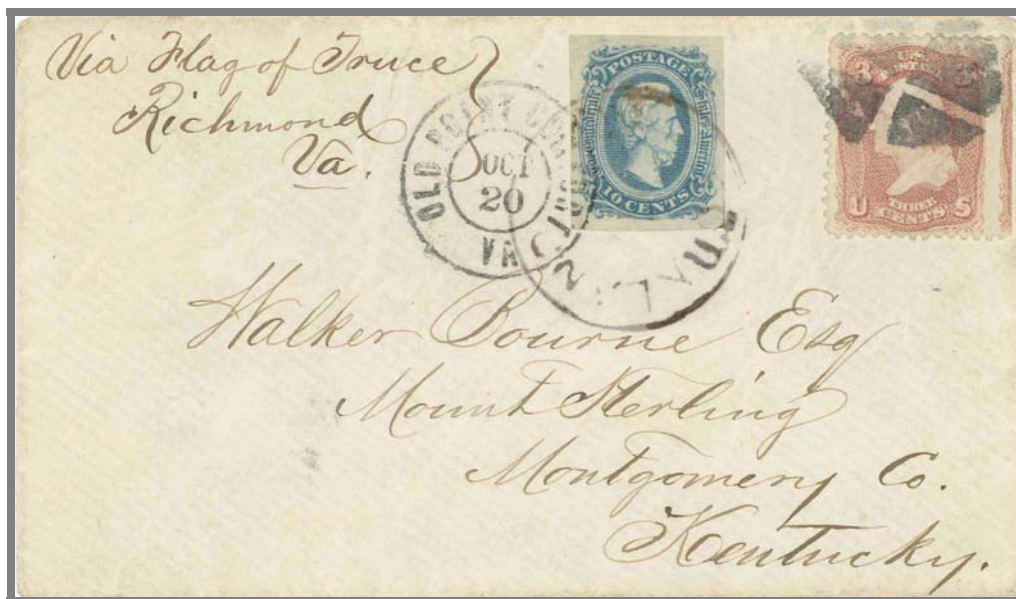 Via Flag of Truce
Richmond
Va.
OLD POINT
OCT
20
VA
POSTAGE
10 CENTS
3
U S
THREE
CENTS
Walker Bourne Esq
Mount Sterling
Montgomery Co.
Kentucky.